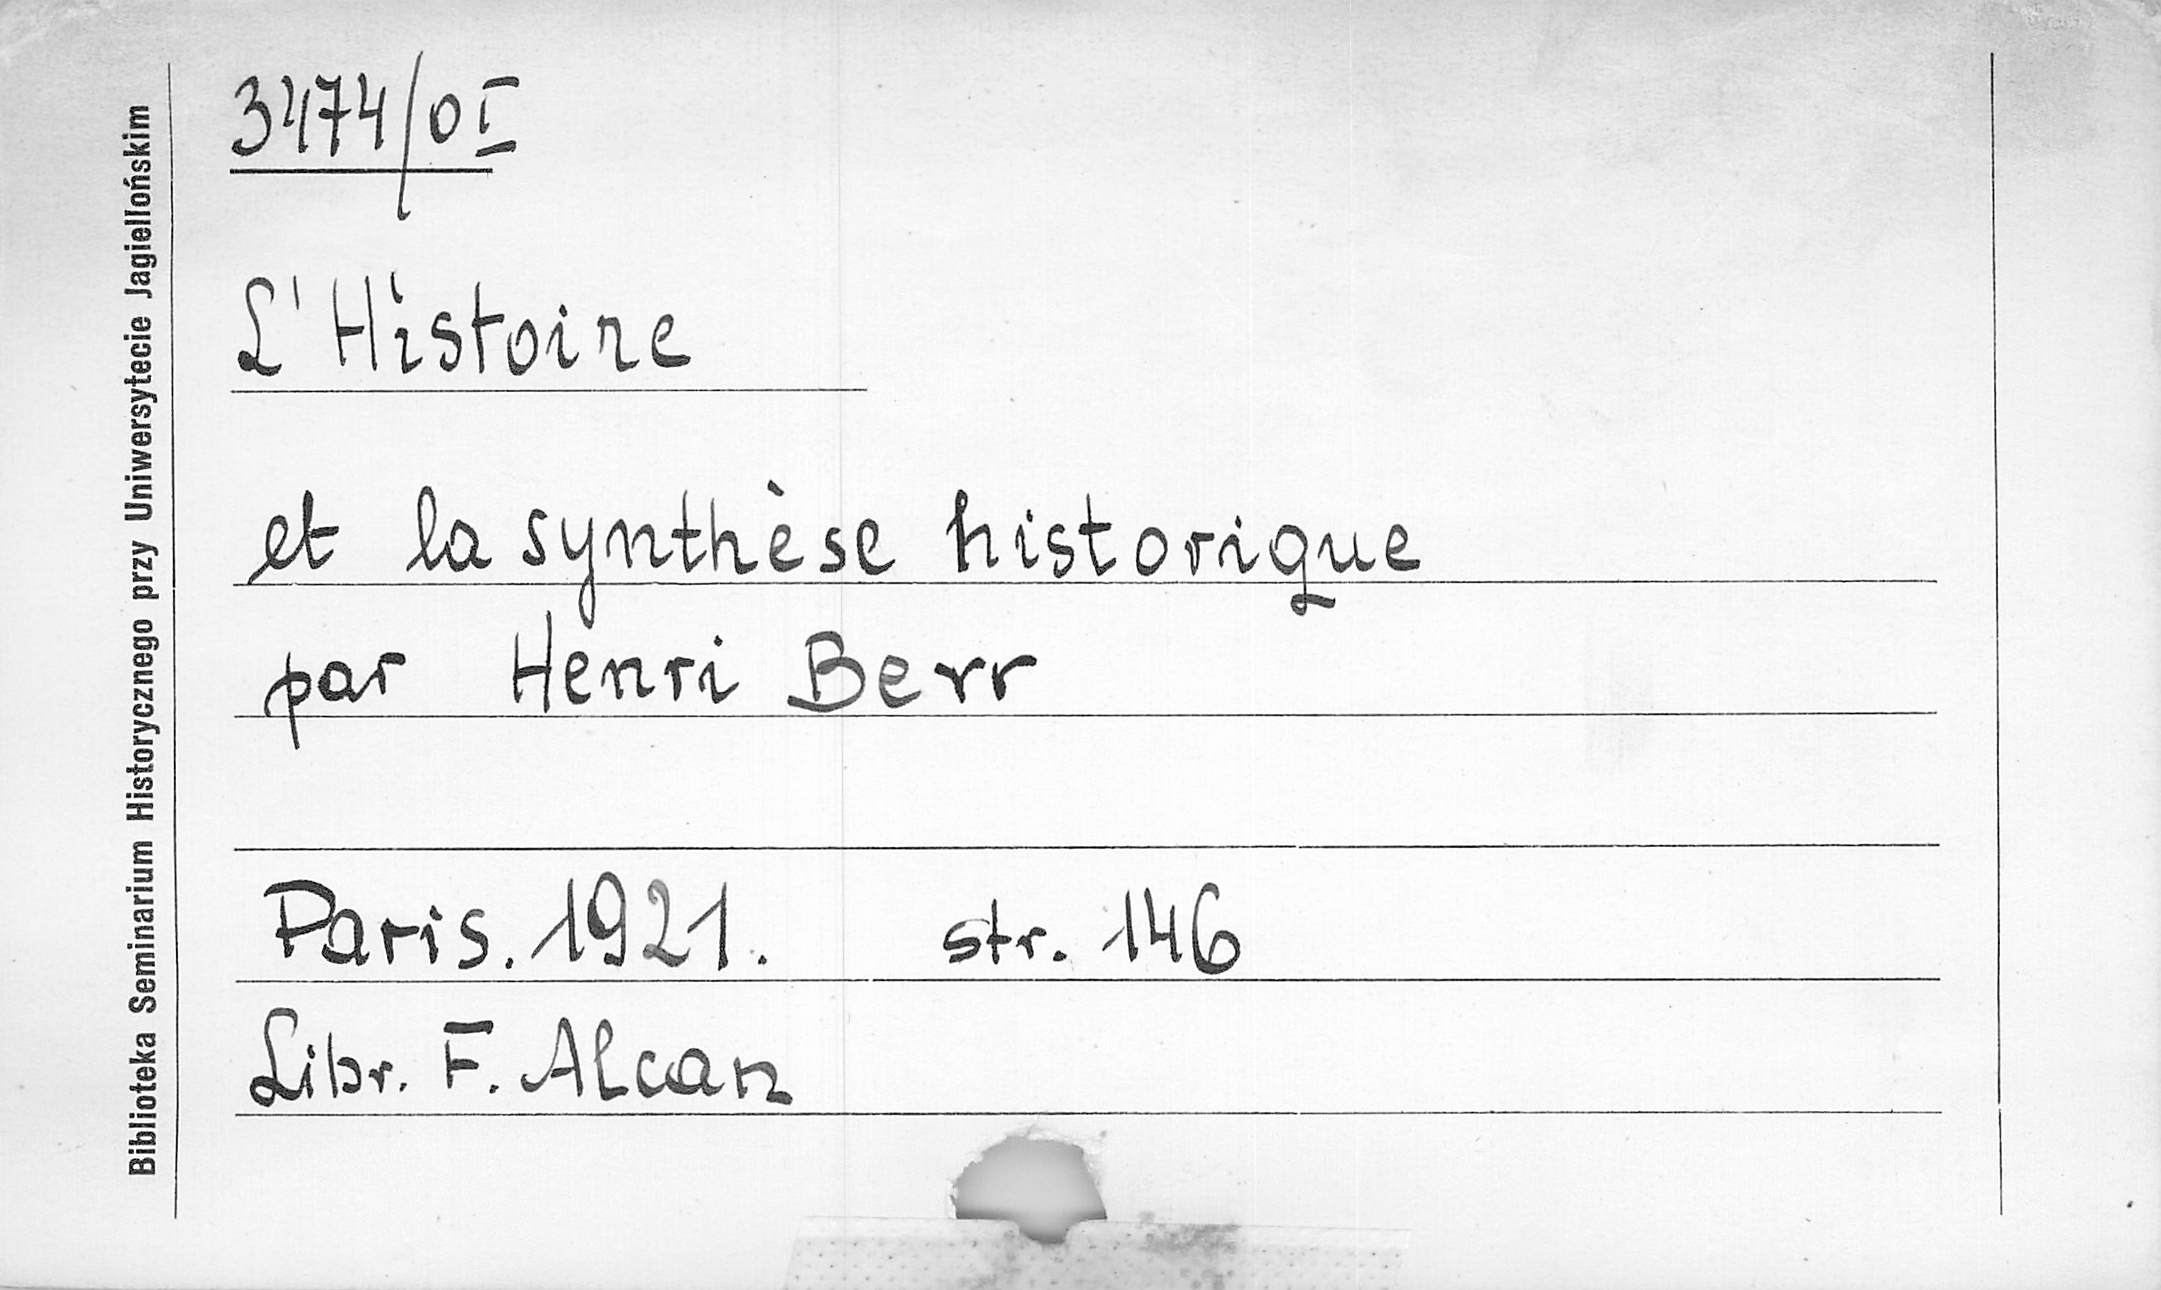 3474/0 I
L'Histoire
et la synthèse historique
par Henri Berr
Paris. 1921. str. 146
Libr. F. Alcan
Biblioteka Seminarium Historycznego przy Uniwersytecie Jagiellońskim